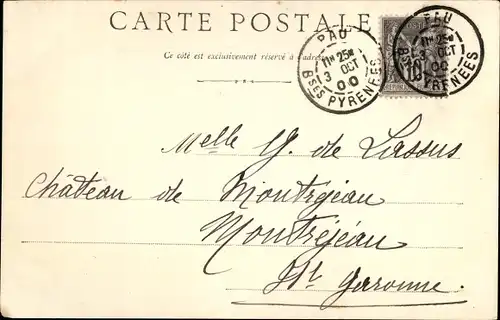 CARTE POSTALE
Ce côté est exclusivement réservé à l'adresse
PAU
11H 25M
3 OCT
00
BSES PYRENEES
PAU
11H 25M
3 OCT
00
PYRENEES
10
Melle G. de Lassus
Château de Montréjeau
Montréjeau
Hte Garonne.